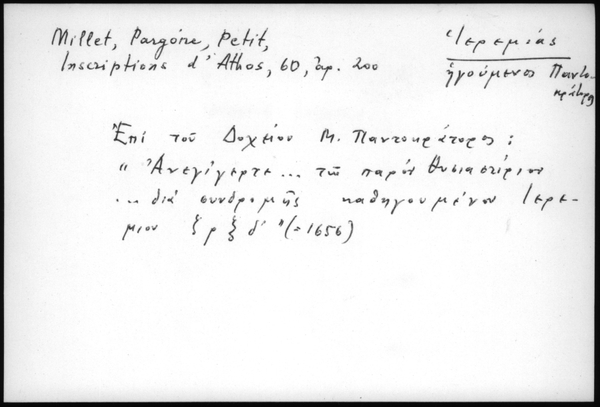 Millet, Pargoire, Petit,
Inscriptions d'Athos, 60, ἀρ. 200
Ἱερεμίας
ἡγούμενος Παντο-
κράτορος
Ἐπί τοῦ Δοχείου Μ. Παντοκράτορος:
"Ἀνεγίγερτε... τῶ παρόν θυσιαστίριον
... διά συνδρομῆς καθηγουμένου Ιερε-
μιου ξρξδ' "(=1656)